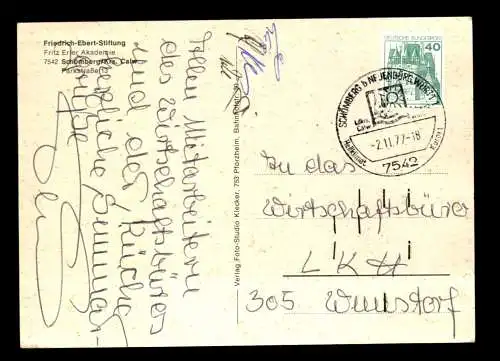 Friedrich-Ebert-Stiftung
Fritz Erler Akademie
7542 Schömberg/Krs. Calw
Parkstraße 13
Allen Mitarbeitern
des Wirtschaftsbüros
und der Küche
herzliche
Grüße
Verlag Foto-Studio Klecker, 753 Pforzheim,
DEUTSCHE BUNDESPOST
40
SCHÖMBERG b NEUENBÜRG, WÜRTT
Ldkrs.
Calw
-2.11.77-18
Heilklimat. Kurort
7542
An das
Wirtschaftsbüro
LKH
305 Wunstorf